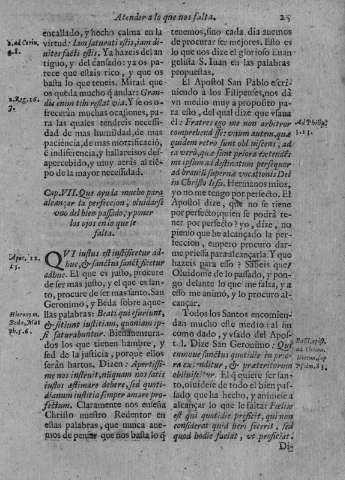 Atender a lo que nos falta. 25
encallado, y hecho calma en la
virtud: Iam saturati estis, iam di-
vites facti estis. Ya hazeis del an-
tiguo, y del cansado: ya os pa-
rece que estais rico, y que os
basta lo que teneis. Mirad que
os queda mucho que andar: Gran-
dis enim tibi restat via. Y se os o-
frecerán muchas ocasiones, pa-
ra las quales tendreis necessi-
dad de mas humildad, de mas
paciencia, de mas mortificació,
é indiferencia, y hallareisos des-
apercebido, y muy atrás al tiē-
po de la mayor necessidad.
2. ad Corin.
4. 8.
7.
Cap. VII. Que ayuda mucho para
alcançar la perfeccion, olvidarse
uno del bien passado, y poner
los ojos en lo que le
falta.
QVI iustus est iustificetur ad-
huc, & sanctus sanctificetur
adhuc. El que es justo, procure
de ser mas justo, y el que es san-
to, procure de ser mas santo. San
Geronimo, y Beda sobre aque-
llas palabras: Beati qui esuriunt,
& sitiunt iustitiam, quoniam ip-
si saturabuntur. Bienaventura-
dos los que tienen hambre, y
sed de la justicia, porque ellos
serán hartos. Dizen: Apertissi-
me nos instruit, nunquam nos satis
iustos æstimare debere, sed quoti-
dianum iustitiæ semper amare pro-
fectum. Claramente nos enseña
Christo nuestro Redentor en
estas palabras, que nunca ave-
mos de pensar que nos basta lo q̃
Apoc. 22.
11.
Hieronym.
tenemos, sino cada dia avemos
de procurar ser mejores. Esto es
lo que nos dize el glorioso Evan-
gelista S. Iuan en las palabras
propuestas.
El Apostol San Pablo escri-
viendo a los Filipenses, nos dá
un medio muy a proposito pa-
ra ello, del qual dize que usava
el: Fratres ego me non arbitror
comprehendisse: unum autem, quæ
quidem retro sunt obliviscens, ad
ea verò, quæ sunt priora extendens
me ipsum ad destinatum persequor
ad bravium supernæ vocationis Dei
in Christo Iesu. Hermanos mios,
yo no me tengo por perfecto. El
Apostol dize, que no se tiene
por perfecto, quien se podrá te-
ner por perfecto? yo, dize, no
pienso que he alcançado la per-
feccion, empero procuro dar-
me priessa para alcançarla. Y que
hazeis para esso? Sabeis que?
Olvidome de lo passado, y pon-
go delante lo que me falta, y a
esso me animo, y lo procuro al-
cançar.
Todos los Santos encomien-
dan mucho este medio: al fin
como dado, y usado del Apos-
tol. Dize San Geronimo: Qui-
cumque sanctus quotidie in prio-
ra extenditur, & præteritorum
obliviscitur. El q̃ quiere ser san-
to, olvidese de todo el bien pas-
sado que ha hecho, y animese a
alcançar lo que le falta: Fœlix
est qui quotidie proficit, qui non
considerat quid heri fecerit, sed
quod hodie faciat, ut proficiat.
Di-
3. 13.